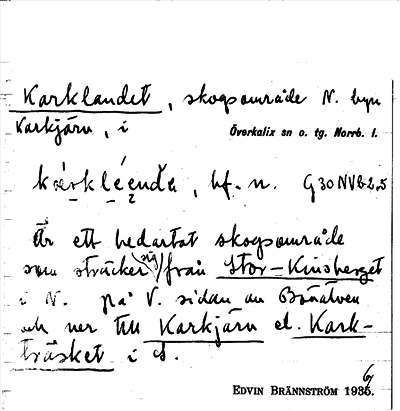 Karklandet, skogsområde N. byn
Karkjärn, i
Överkalix sn o. tg. Norrb. l.
bf. n. G30NVb2,5
Är ett hedartat skogsområde
som sträcker sig från Stor-Kinsberget
i N. på V. sidan av Bönälven
och ner till Karkjärn el. Kark-
träsket i S.
EDVIN BRÄNNSTRÖM 1936.